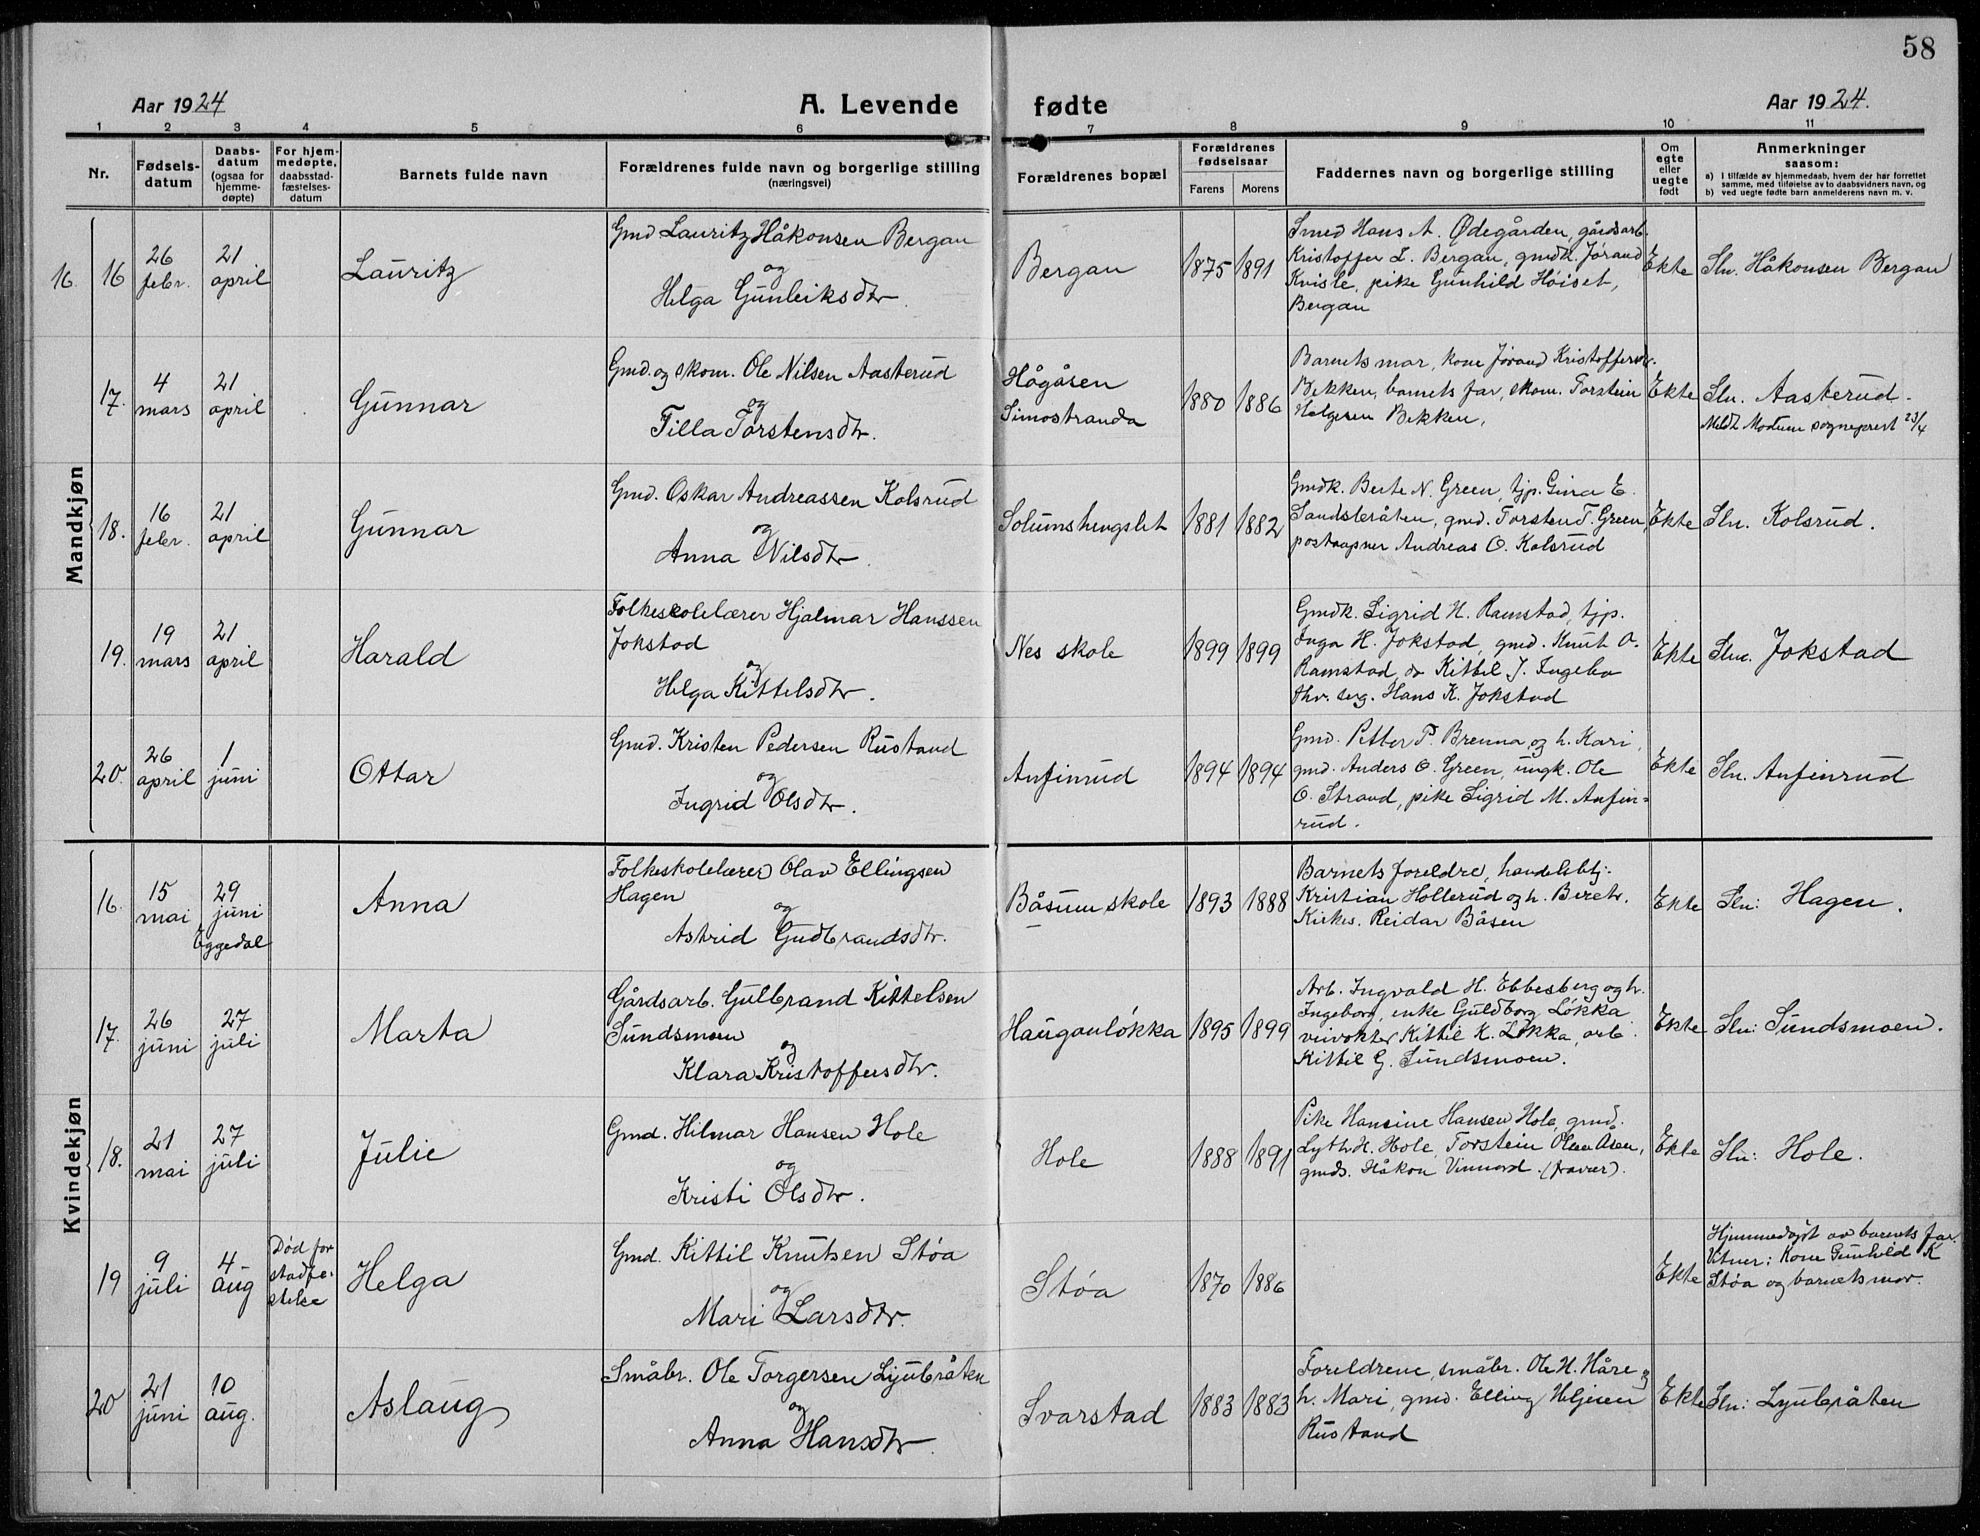 58
Aar 1924
A. Levende fødte
Aar 1924.
1 2 3 4 5 6 7 8 9 10 11
Nr.
Fødsels-
datum
Daabs-
datum
(ogsaa for
hjemme-
døpte)
For hjem-
medøpte,
daabsstad-
fæstelses-
datum
Barnets fulde navn
Forældrenes fulde navn og borgerlige stilling
(næringsvei)
Forældrenes bopæl
Forældrenes
fødselsaar
Farens Morens
Faddernes navn og borgerlige stilling
Om
egte
eller
uegte
født
Anmerkninger
saasom:
a) i tilfælde av hjemmedaab, hvem der har forrettet
samme, med tilføielse av to daabsvidners navn, og
b) ved uegte fødte barn anmelderens navn m. v.
Mandkjøn
16 16
26
febr.
21
april
Lauritz
Gmd Lauritz Håkonsen Bergan
og
Helga Gunleiksdtr.
Bergan
1875 1891
Smed Hans A. Ødegården, gårdsarb.
Kristoffer L. Bergan, gmdk. Jørand
Kvisle, pike Gunhild Høiset,
Bergan
Ekte
Sln. Håkonsen Bergan
17.
4
mars
21
april
Gunnar
Gmd. og skom. Ole Nilsen Aasterud
og
Tilla Torstensdtr.
Høgåsen
Simostranda
1880 1886
Barnets mor, kone Jørand Kristoffersdtr.
Bekken, barnets far, skom. Torstein
Helgesen Bekken.
Ekte
Sln. Aasterud.
Meldt Modum sogneprest 23/4
18.
16
febr.
21
april
Gunnar
Gmd. Oskar Andreassen Kolsrud
og
Anna Nilsdtr.
Solumshengslet
1881 1882
Gmdk. Berte N. Green, tjp. Gina E.
Sandsteråten, gmd. Torsten T. Green
postaapner Andreas O. Kolsrud
Ekte
Sln. Kolsrud.
19.
19
mars
21
april
Harald
Folkeskolelærer Hjalmar Hanssen
Jokstad
og
Helga Kittelsdtr.
Nes skole
1899 1899
Gmdk. Sigrid H. Ramstad, tjp.
Inga H. Jokstad, gmd. Knut O.
Ramstad, do Kittil J. Ingebo
thv. serg. Hans K. Jokstad
Ekte
Sln. Jokstad
20.
26
april
1
juni
Ottar
Gmd. Kristen Pedersen Rustand
og
Ingrid Olsdtr.
Anfinrud
1894 1894
Gmd. Petter P. Brenna og h. Kari,
gmd. Anders O. Green, ungk. Ole
O. Strand, pike Sigrid M. Anfin-
rud.
Ekte
Sln. Anfinrud
Kvindekjøn
16.
15
mai
29
juni
Eggedal
Anna
Folkeskolelærer Olav Ellingsen
Hagen
og
Astrid Gudbrandsdtr.
Båsum skole
1893 1888
Barnets foreldre, handelsbtj.
Kristian Hollerud og h. Beret,
Kirkes. Reidar Båsen
Ekte
Sln: Hagen.
17.
26
juni
27
juli
Marta
Gårdsarb. Gulbrand Kittelsen
Sundsmoen
og
Klara Kristoffersdtr.
Hauganløkka
1895 1899
Arb. Ingvald H. Ebbesberg og h.
Ingeborg, enke Guldborg Løkka
veivokter Kittil K. Løkka, arb.
Kittil G. Sundsmoen.
Ekte
Sln: Sundsmoen.
18.
21
mai
27
juli
Julie
Gmd. Hilmar Hansen Hole
og
Kristi Olsdtr.
Hole
1888 1891
Pike Hansine Hansen Hole, gmd.
H. Hole, Torstein Olsen Åsen,
gmds. Håkon Vinnord. (fravær).
Ekte
Sln: Hole.
19
9
juli
4
aug
Død for
stadfe-
stelse
Helga
Gmd. Kittil Knutsen Støa
og
Mari Larsdtr.
Støa
1870 1886
Ekte
Hjemmedøpt av barnets far.
Vitner: Kone Gunhild K
Støa og barnets mor.
20
21
juni
10
aug.
Aslaug
Småbr. Ole Torgersen Ljubråten
og
Anna Hansdtr.
Svarstad
1883 1883
Foreldrene, småbr. Ole H. Håre og
h. Mari, gmd. Elling Heljesen
Rustand
Ekte
Sln: Ljubråten